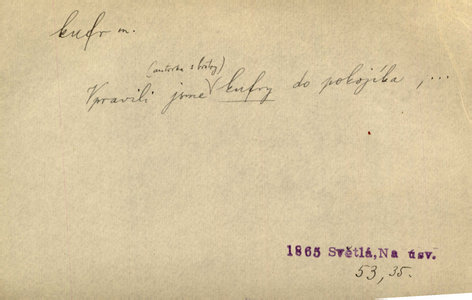 kufr m.
(autorka s hochy)
Vpravili jsme kufry do pokojíka ,...
1865 Světlá,Na úsv.
53, 35.